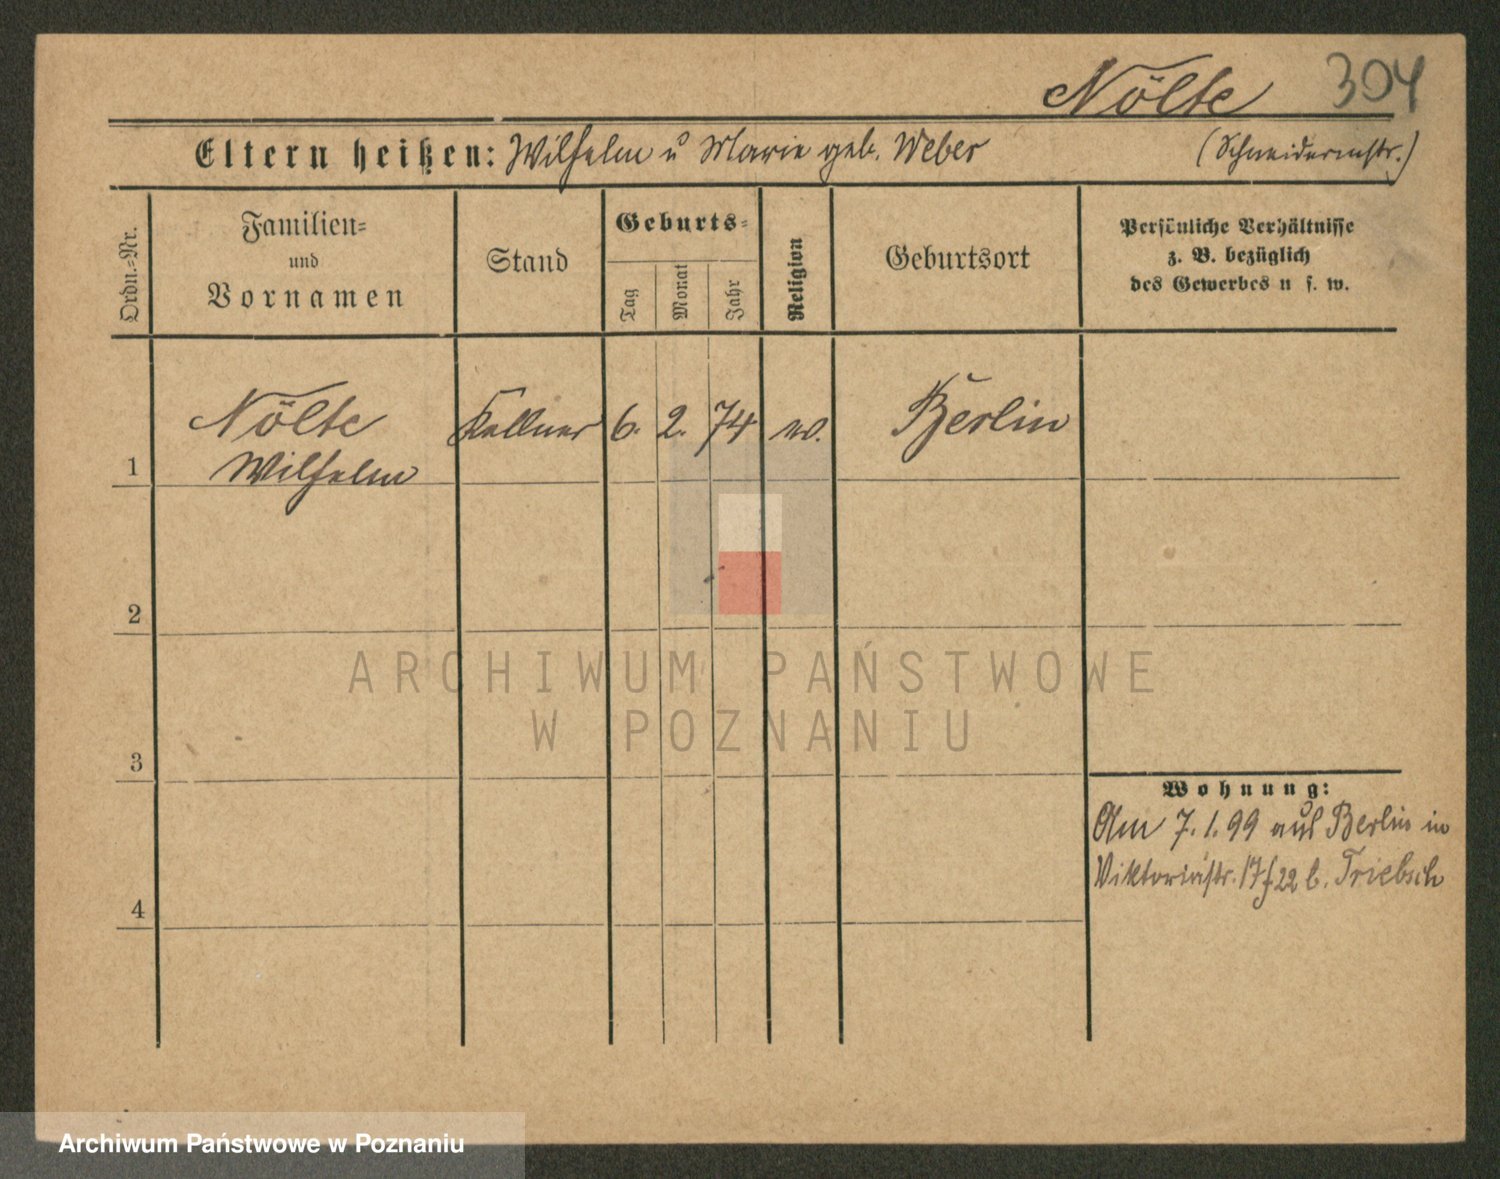 Nölte 304
Eltern heißen: Wilhelm u Marie geb. Weber (Schneidermstr.)
Ordn.-Nr.
Familien-
und
Vornamen
Stand
Geburts-
Tag
Monat
Jahr
Religion
Geburtsort
Persönliche Verhältnisse
z. B. bezüglich
des Gewerbes u s. w.
Nölte Kellner 6. 2. 74 ev. Berlin
1 Wilhelm
2
ARCHIWUM PAŃSTWOWE
W POZNANIU
3
Wohnung:
Am 7.1.99 aus Berlin in
Viktoriastr. 17/22 b. Triebsch
4
Archiwum Państwowe w Poznaniu